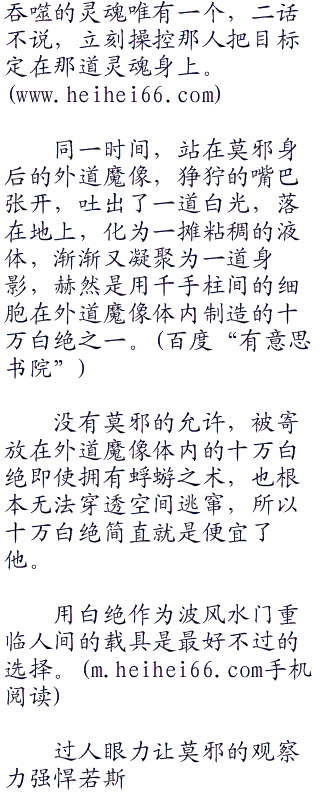 吞噬的灵魂唯有一个，二话
不说，立刻操控那人把目标
定在那道灵魂身上。
(www.heihei66.com)
同一时间，站在莫邪身
后的外道魔像，狰狞的嘴巴
张开，吐出了一道白光，落
在地上，化为一摊粘稠的液
体，渐渐又凝聚为一道身
影，赫然是用千手柱间的细
胞在外道魔像体内制造的十
万白绝之一。(百度“有意思
书院”)
没有莫邪的允许，被寄
放在外道魔像体内的十万白
绝即使拥有蜉蝣之术，也根
本无法穿透空间逃窜，所以
十万白绝简直就是便宜了
他。
用白绝作为波风水门重
临人间的载具是最好不过的
选择。(m.heihei66.com手机
阅读)
过人眼力让莫邪的观察
力强悍若斯